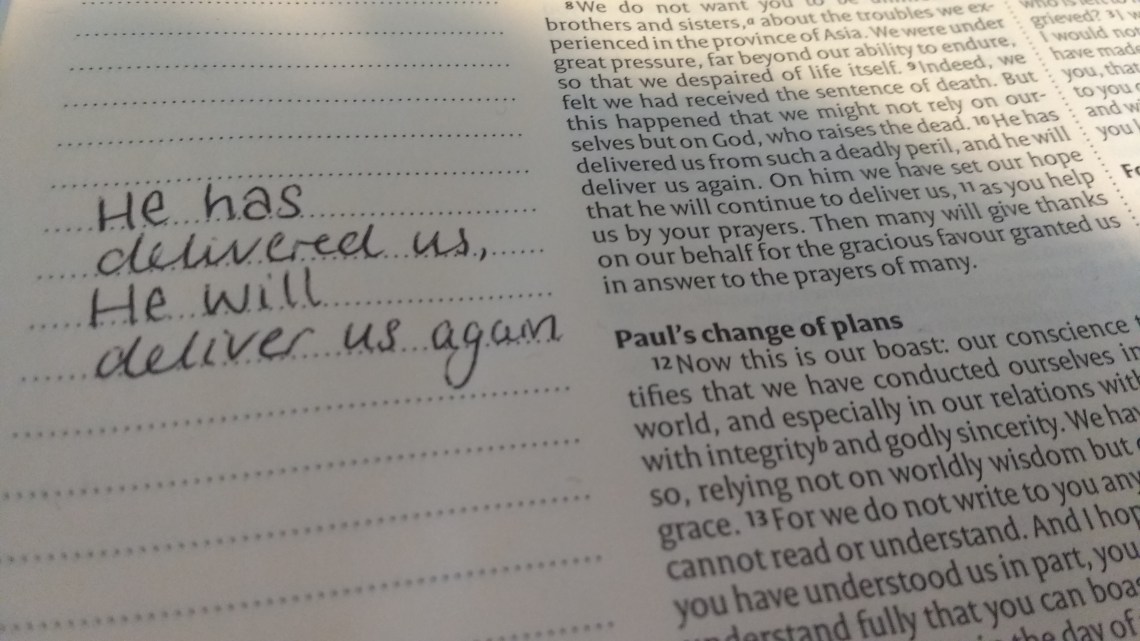 He has
delivered us,
He will
deliver us again
8 We do not want you to be
brothers and sisters,a about the troubles we ex-
perienced in the province of Asia. We were under
great pressure, far beyond our ability to endure,
so that we despaired of life itself. 9 Indeed, we
felt we had received the sentence of death. But
this happened that we might not rely on our-
selves but on God, who raises the dead. 10 He has
delivered us from such a deadly peril, and he will
deliver us again. On him we have set our hope
that he will continue to deliver us, 11 as you help
us by your prayers. Then many will give thanks
on our behalf for the gracious favour granted us
in answer to the prayers of many.
Paul's change of plans
12 Now this is our boast: our conscience
tifies that we have conducted ourselves in
world, and especially in our relations with
with integrityb and godly sincerity. We hav
so, relying not on worldly wisdom but
grace. 13 For we do not write to you any
cannot read or understand. And I hop
you have understood us in part, you
derstand fully that you can boa
the day of
grieved? 31
I would no
have made
you, that
to you
and w
you
Fo